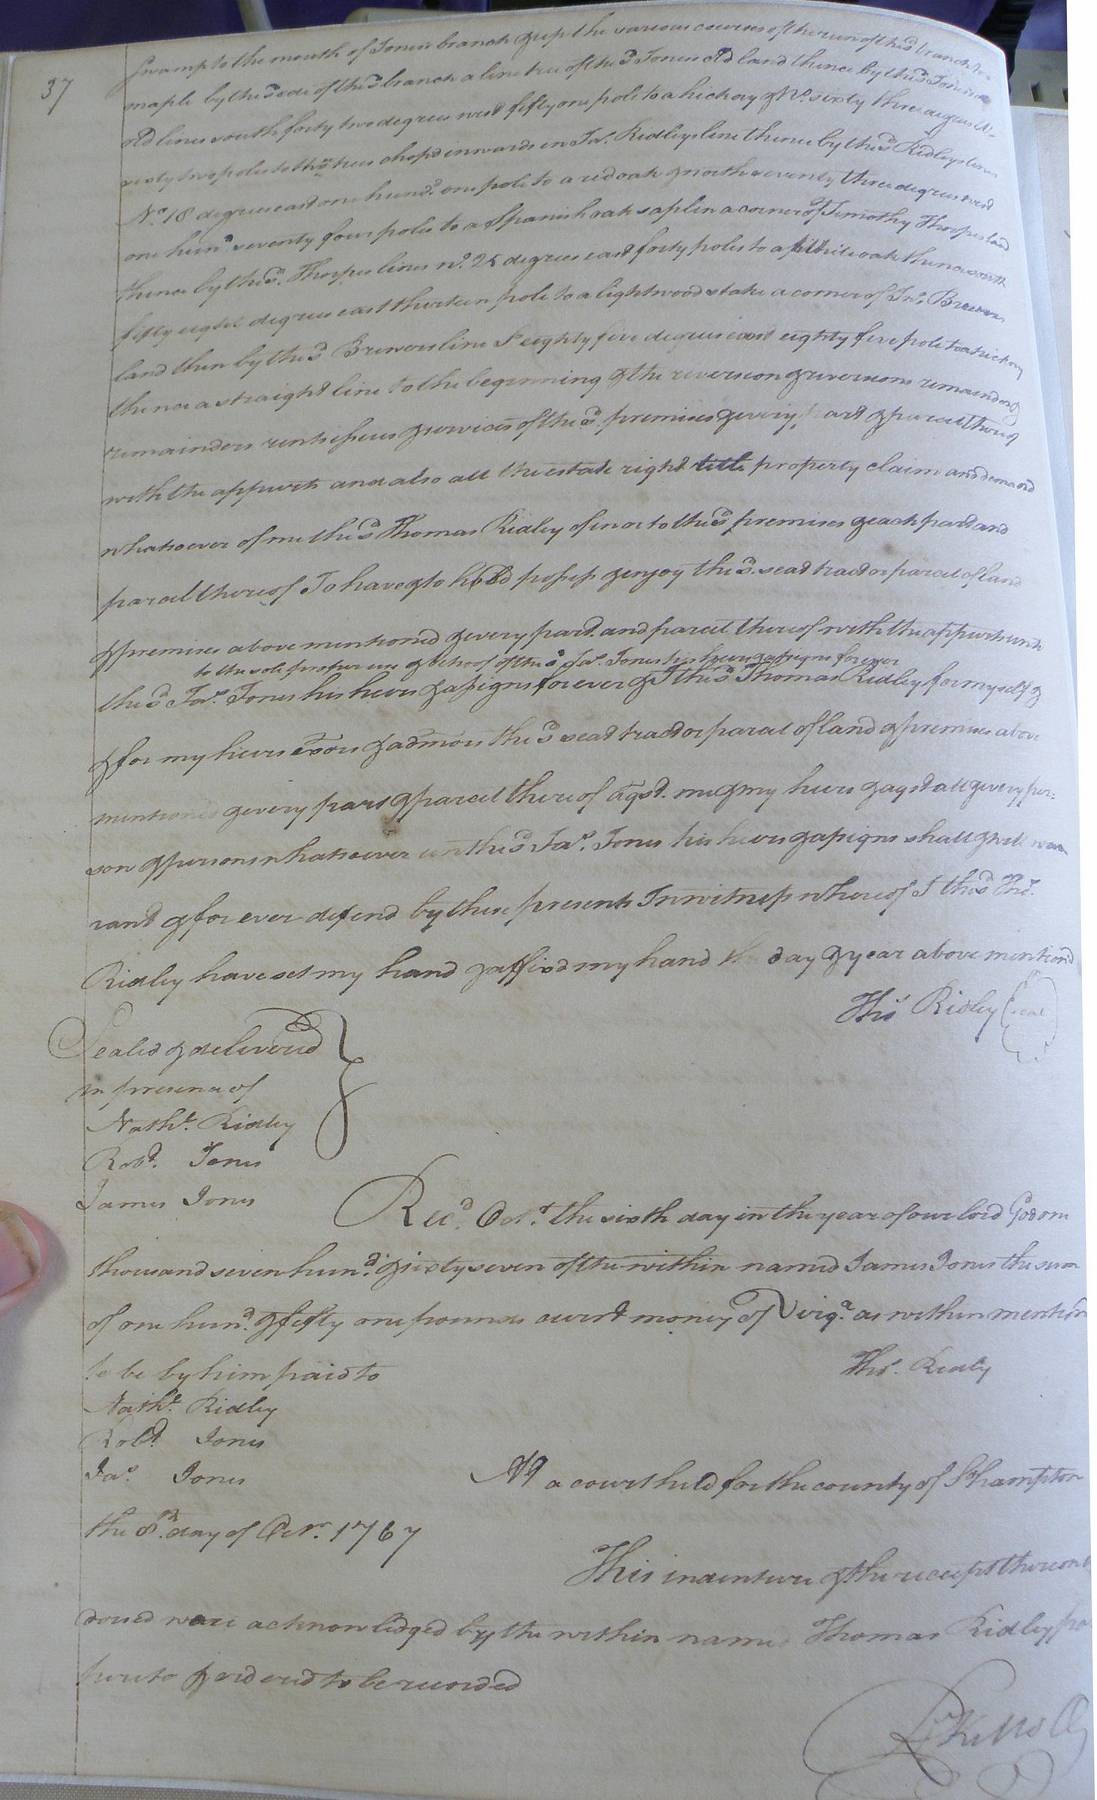 37
swamp to the mouth of Jones branch & up the various courses of the run of the sd. branch to a
maple by the side of the sd. branch a line tree of the sd. Jones old land thence by the sd. Jones's
old lines south forty two degrees west fifty one pole to a hickory & No. sixty three degrees W.
sixty two poles to three trees chopd inwards in Jas. Ridleys line thence by the sd. Ridleys lines
No. 18 degrees east one hund. one pole to a red oak & north seventy three degrees west
one hund. seventy four poles to a Spanish oak saplin a corner of Timothy Thorps land
thence by the sd. Thorpes lines no. 25 degrees east forty poles to a white oak thence north
fifty eight degrees east thirteen pole to a lightwood stake a corner of Jno. Brewers
land then by the sd. Brewers line S eighty five degrees east eighty five pole to a hickory
thence a straight line to the beginning & the reversion & reversions remainder &
remainders rents issues & services of the sd. premises & every part & parcel thereof
with the appurts and also all the estate right title property claim and demand
whatsoever of me the sd. Thomas Ridley of in or to the sd. premises & each part and
parcel thereof To have & to hold possess & enjoy the sd. seat tract or parcel of land
& premises above mentioned & every part and parcel thereof with the appurtunts
to the sole proper use & behoof of the sd. Jas. Jones his heirs & assigns for ever
the sd. Jas. Jones his heirs & assigns for ever & I the sd. Thomas Ridley for myself &
& for my heirs exors & admors the sd. seat tract or parcel of land & premises above
mentioned & every part & parcel thereof agst. me & my heirs & agst all & every per-
son & persons whatsoever unto the sd. Jas. Jones his heirs & assigns shall & will war
rant & for ever defend by these presents In witness whereof I the sd. Thos.
Ridley have set my hand & affixd my hand the day & year above mentiond
Thos Ridley (seal)
Sealed & delivered
in presence of
Nathl. Ridley
Robt. Jones
James Jones
Recd. Octr. the sixth day in the year of our lord God one
thousand seven hund. & sixty seven of the within named James Jones the sum
of one hund. & fifty one pounds curr't money of Virga. as within mentiond
to be by him paid to
Thos. Ridley
Nathl. Ridley
Robt. Jones
Jas. Jones
At a court held for the county of S:hampton
the 8th. day of Octr. 1767
This indenture & the receipt thereon en
dorsed were acknowledged by the within named Thomas Ridley pa
hereto & ordered to be recorded